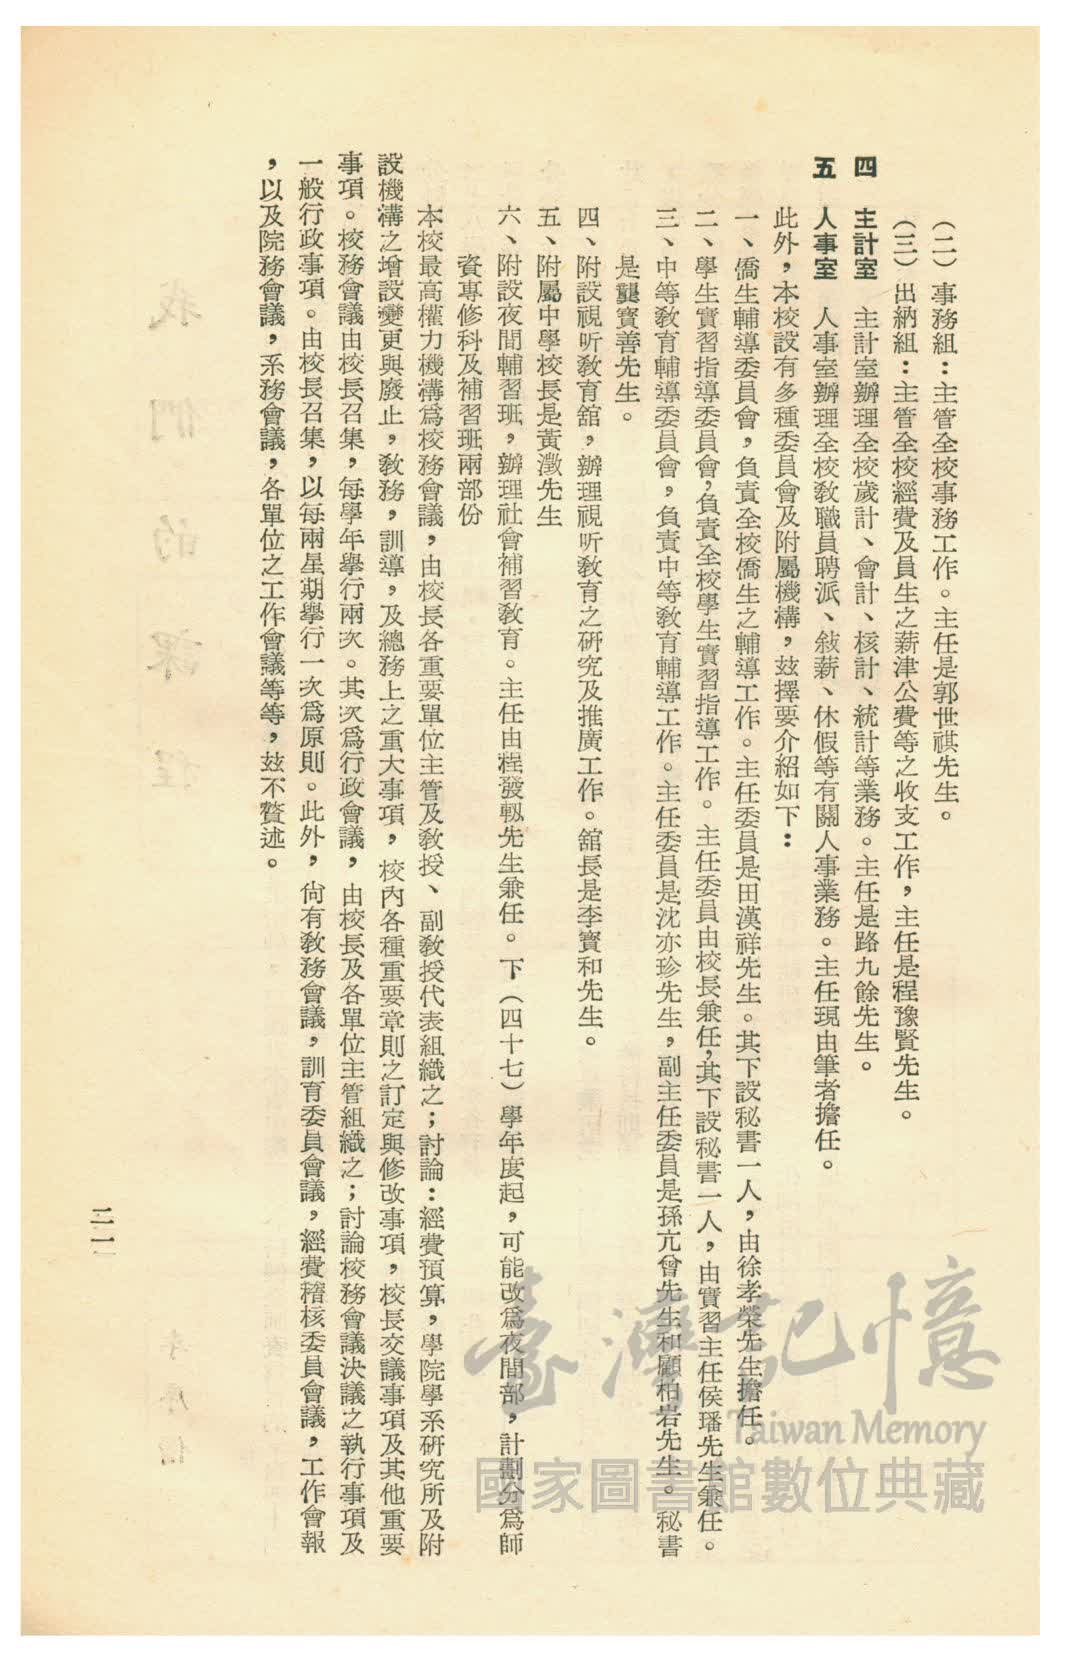 （二）事務組：主管全校事務工作。主任是郭世祺先生。
（三）出納組：主管全校經費及員生之薪津公費等之收支工作，主任是程豫賢先生。
四　主計室　主計室辦理全校歲計、會計、核計、統計等業務。主任是路九餘先生。
五　人事室　人事室辦理全校教職員聘派、敍薪、休假等有關人事業務。主任現由筆者擔任。
此外，本校設有多種委員會及附屬機構，玆擇要介紹如下：
一、僑生輔導委員會，負責全校僑生之輔導工作。主任委員是田漢祥先生。其下設秘書一人，由徐孝榮先生擔任。
二、學生實習指導委員會，負責全校學生實習指導工作。主任委員由校長兼任，其下設秘書一人，由實習主任侯璠先生兼任。
三、中等教育輔導委員會，負責中等教育輔導工作。主任委員是沈亦珍先生，副主任委員是孫亢曾先生和顧柏岩先生。秘書
是龔寶善先生。
四、附設視听教育舘，辦理視听教育之研究及推廣工作。舘長是李寳和先生。
五、附屬中學校長是黃澂先生
六、附設夜間輔習班，辦理社會補習教育。主任由程發軔先生兼任。下（四十七）學年度起，可能改爲夜間部，計劃分爲師
資專修科及補習班兩部份
本校最高權力機溝爲校務會議，由校長各重要單位主管及教授、副教授代表組織之；討論：經費預算，學院學系研究所及附
設機溝之增設變更與廢止，教務，訓導，及總務上之重大事項，校內各種重要章則之訂定與修改事項，校長交議事項及其他重要
事項。校務會議由校長召集，每學年舉行兩次。其次爲行政會議，由校長及各單位主管組織之；討論校務會議決議之執行事項及
一般行政事項。由校長召集，以每兩星期擧行一次爲原則。此外，尙有教務會議，訓育委員會議，經費稽核委員會議，工作會報
，以及院務會議，系務會議，各單位之工作會議等等，玆不贅述。
二一
臺灣記憶
Taiwan Memory
國家圖書館數位典藏